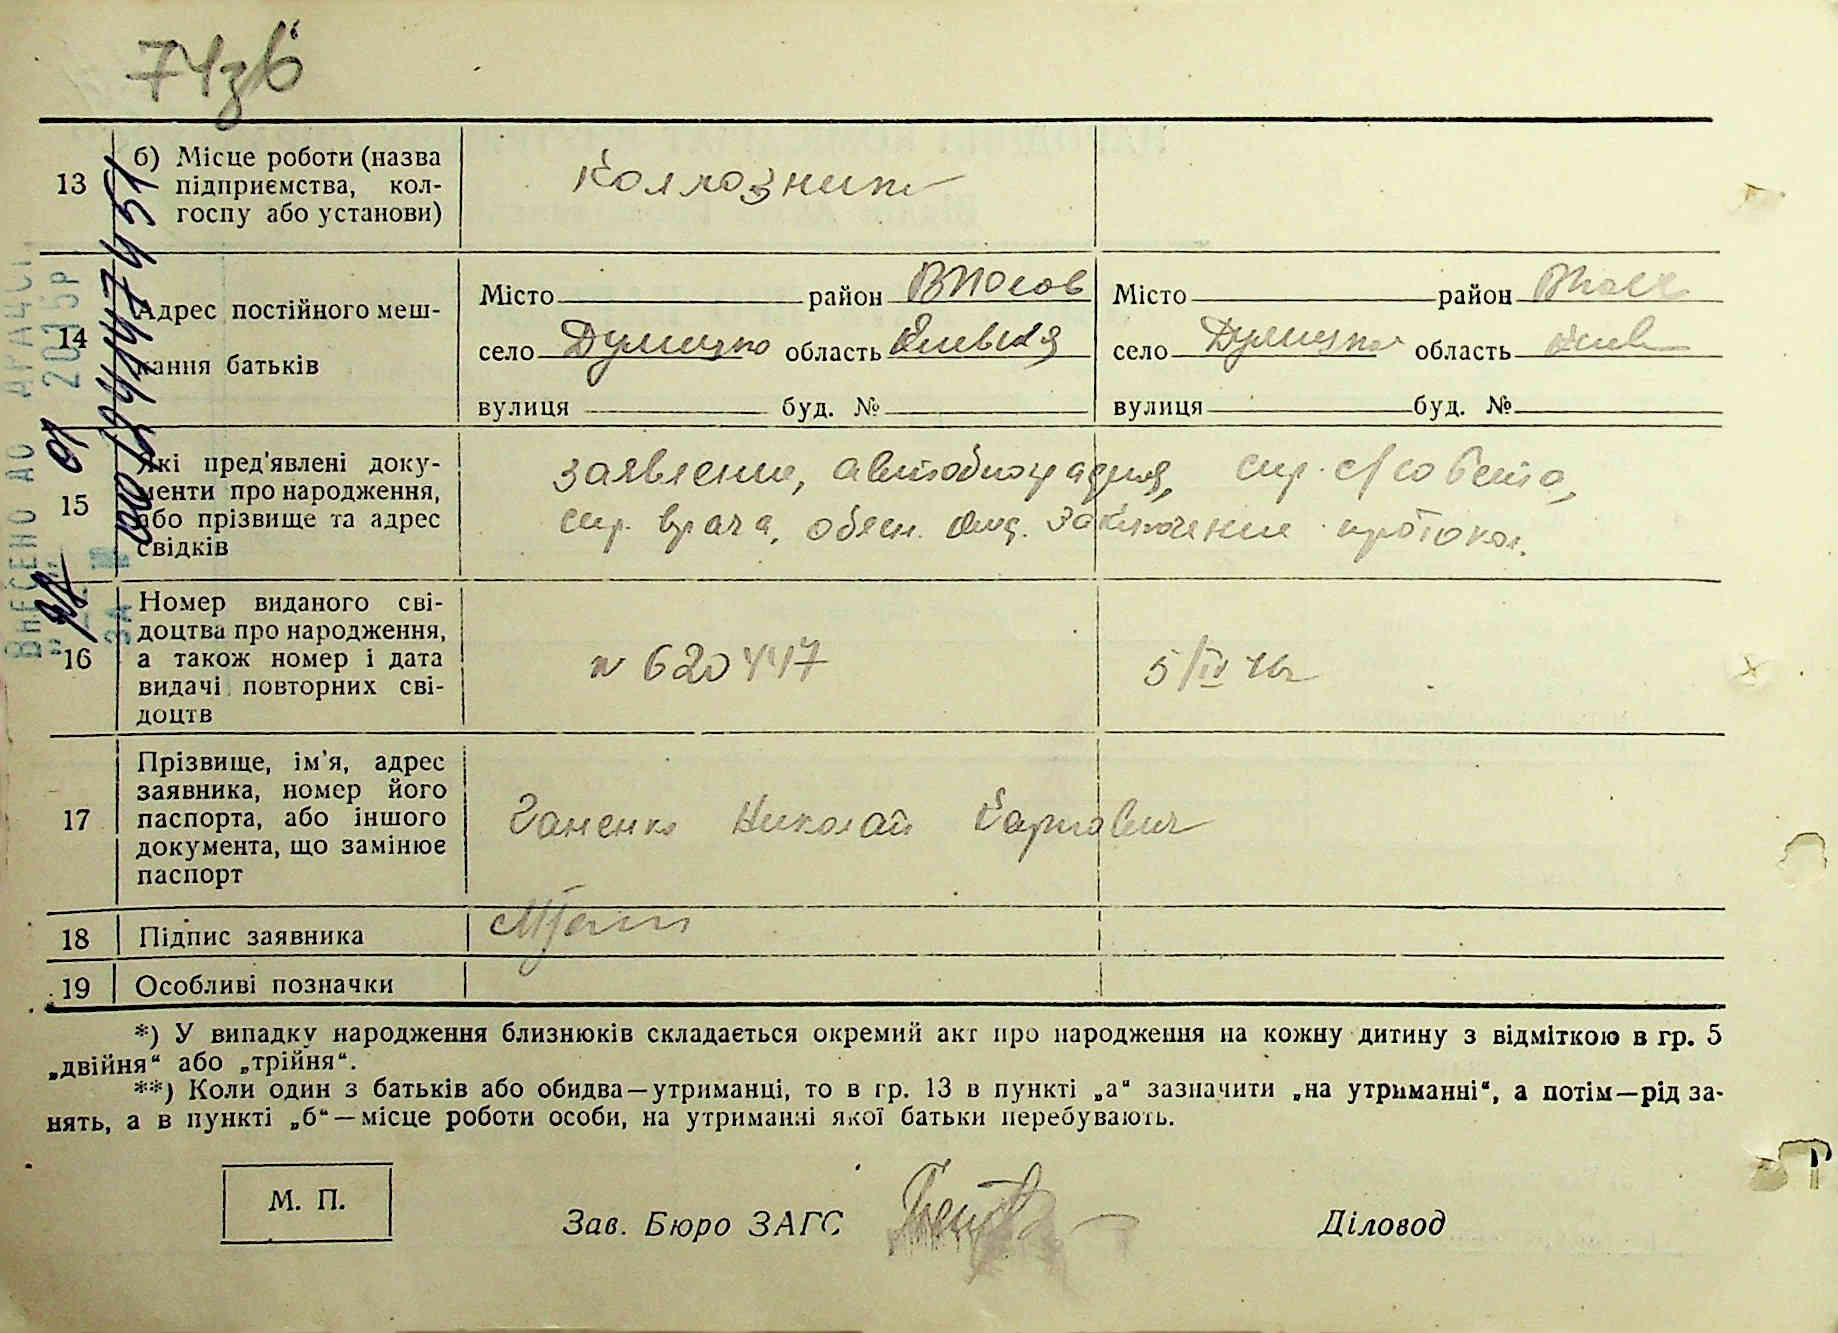 74зв
13 б) Місце роботи (назва підприємства, кол-госпу або установи) Колхозник
14 Адрес постійного меш-кання батьків
Місто район
село Дулицко область Киевская
вулиця буд. №
Місто район
село Дулицко область Киев
вулиця буд. №
15 Які пред'явлені доку-менти про народження, або прізвище та адрес свідків
заявление, автобиография, спр. с/совета,
спр. врача, заключение протокол.
16 Номер виданого сві-доцтва про народження, а також номер і дата видачі повторних сві-доцтв
N 620447 5/IV
17 Прізвище, ім'я, адрес заявника, номер його паспорта, або іншого документа, що замінює паспорт
Ганенко Николай Карпович
18 Підпис заявника
19 Особливі позначки
*) У випадку народження близнюків складається окремий акт про народження на кожну дитину з відміткою в гр. 5
„двійня“ або „трійня“.
**) Коли один з батьків або обидва—утриманці, то в гр. 13 в пункті „а“ зазначити „на утриманні“, а потім—рід за-
нять, а в пункті „б“—місце роботи особи, на утриманні якої батьки перебувають.
М. П.
Зав. Бюро ЗАГС
Діловод
ВНЕСЕНО ДО ДРАЦСГ